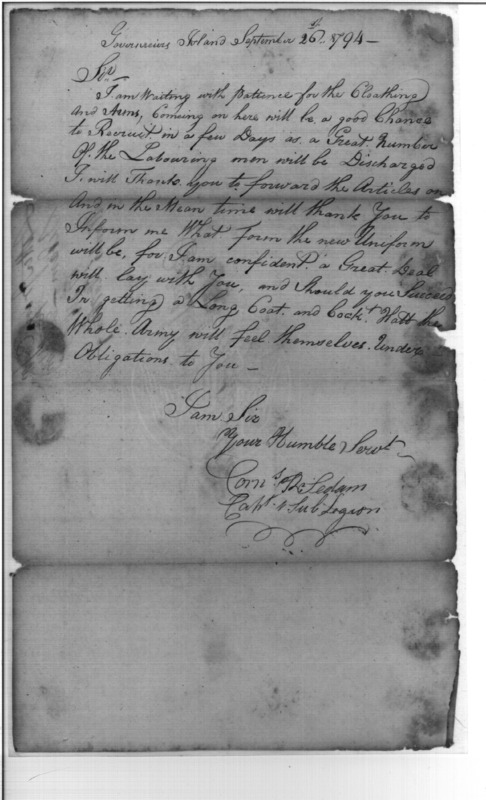 Governeiurs Island September 26th 1794 —
Sir —
I am Waiting with Patience for the Cloathing
And Arms, Comeing on here will be a good Chance
to Recruit in a few Days as a Great Number
Of the Labouring men will be Discharged
I will Thank you to forward the Articles on
And in the Mean time will thank You to
Inform me What form the new Uniform
will be, for I am confident a Great Deal
will lay with You, and Should you Succeed
In getting a Long Coat and Cockt Hatt the
Whole Army will feel themselves Under
Obligations to You —
I am Sir
Your Humble Servt
Corns R Sedam
Capt 4 Sub Legion